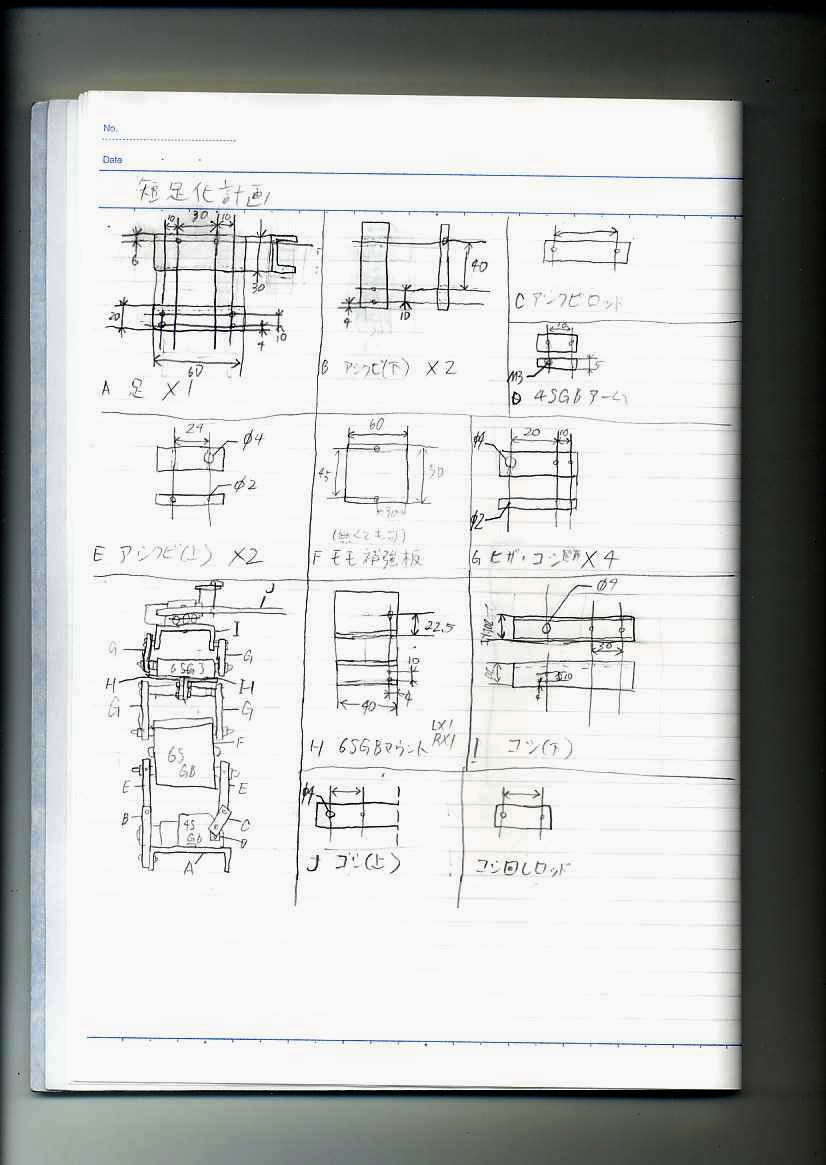 No.
Date
短足化計画
10 30 10
6
30
20
4
10
60
A 足 X1
40
4
10
B アシクビ(下) X2
C アシクビロッド
10
M3
5
D 4SGBアーム
24
φ4
φ2
E アシクビ(上) X2
60
45
50
30
(無くても可)
F モモ補強板
φ4
20
10
φ2
G ヒザ・コシ X4
J
I
G
6SGB
G
H
H
G
G
6S
GB
F
E
E
B
4S
GB
C
D
A
22.5
10
4
40
H 6SGBマウント LX1
RX1
φ4
I コシ(下)
φ4
J コシ(上)
コシ回しロッド